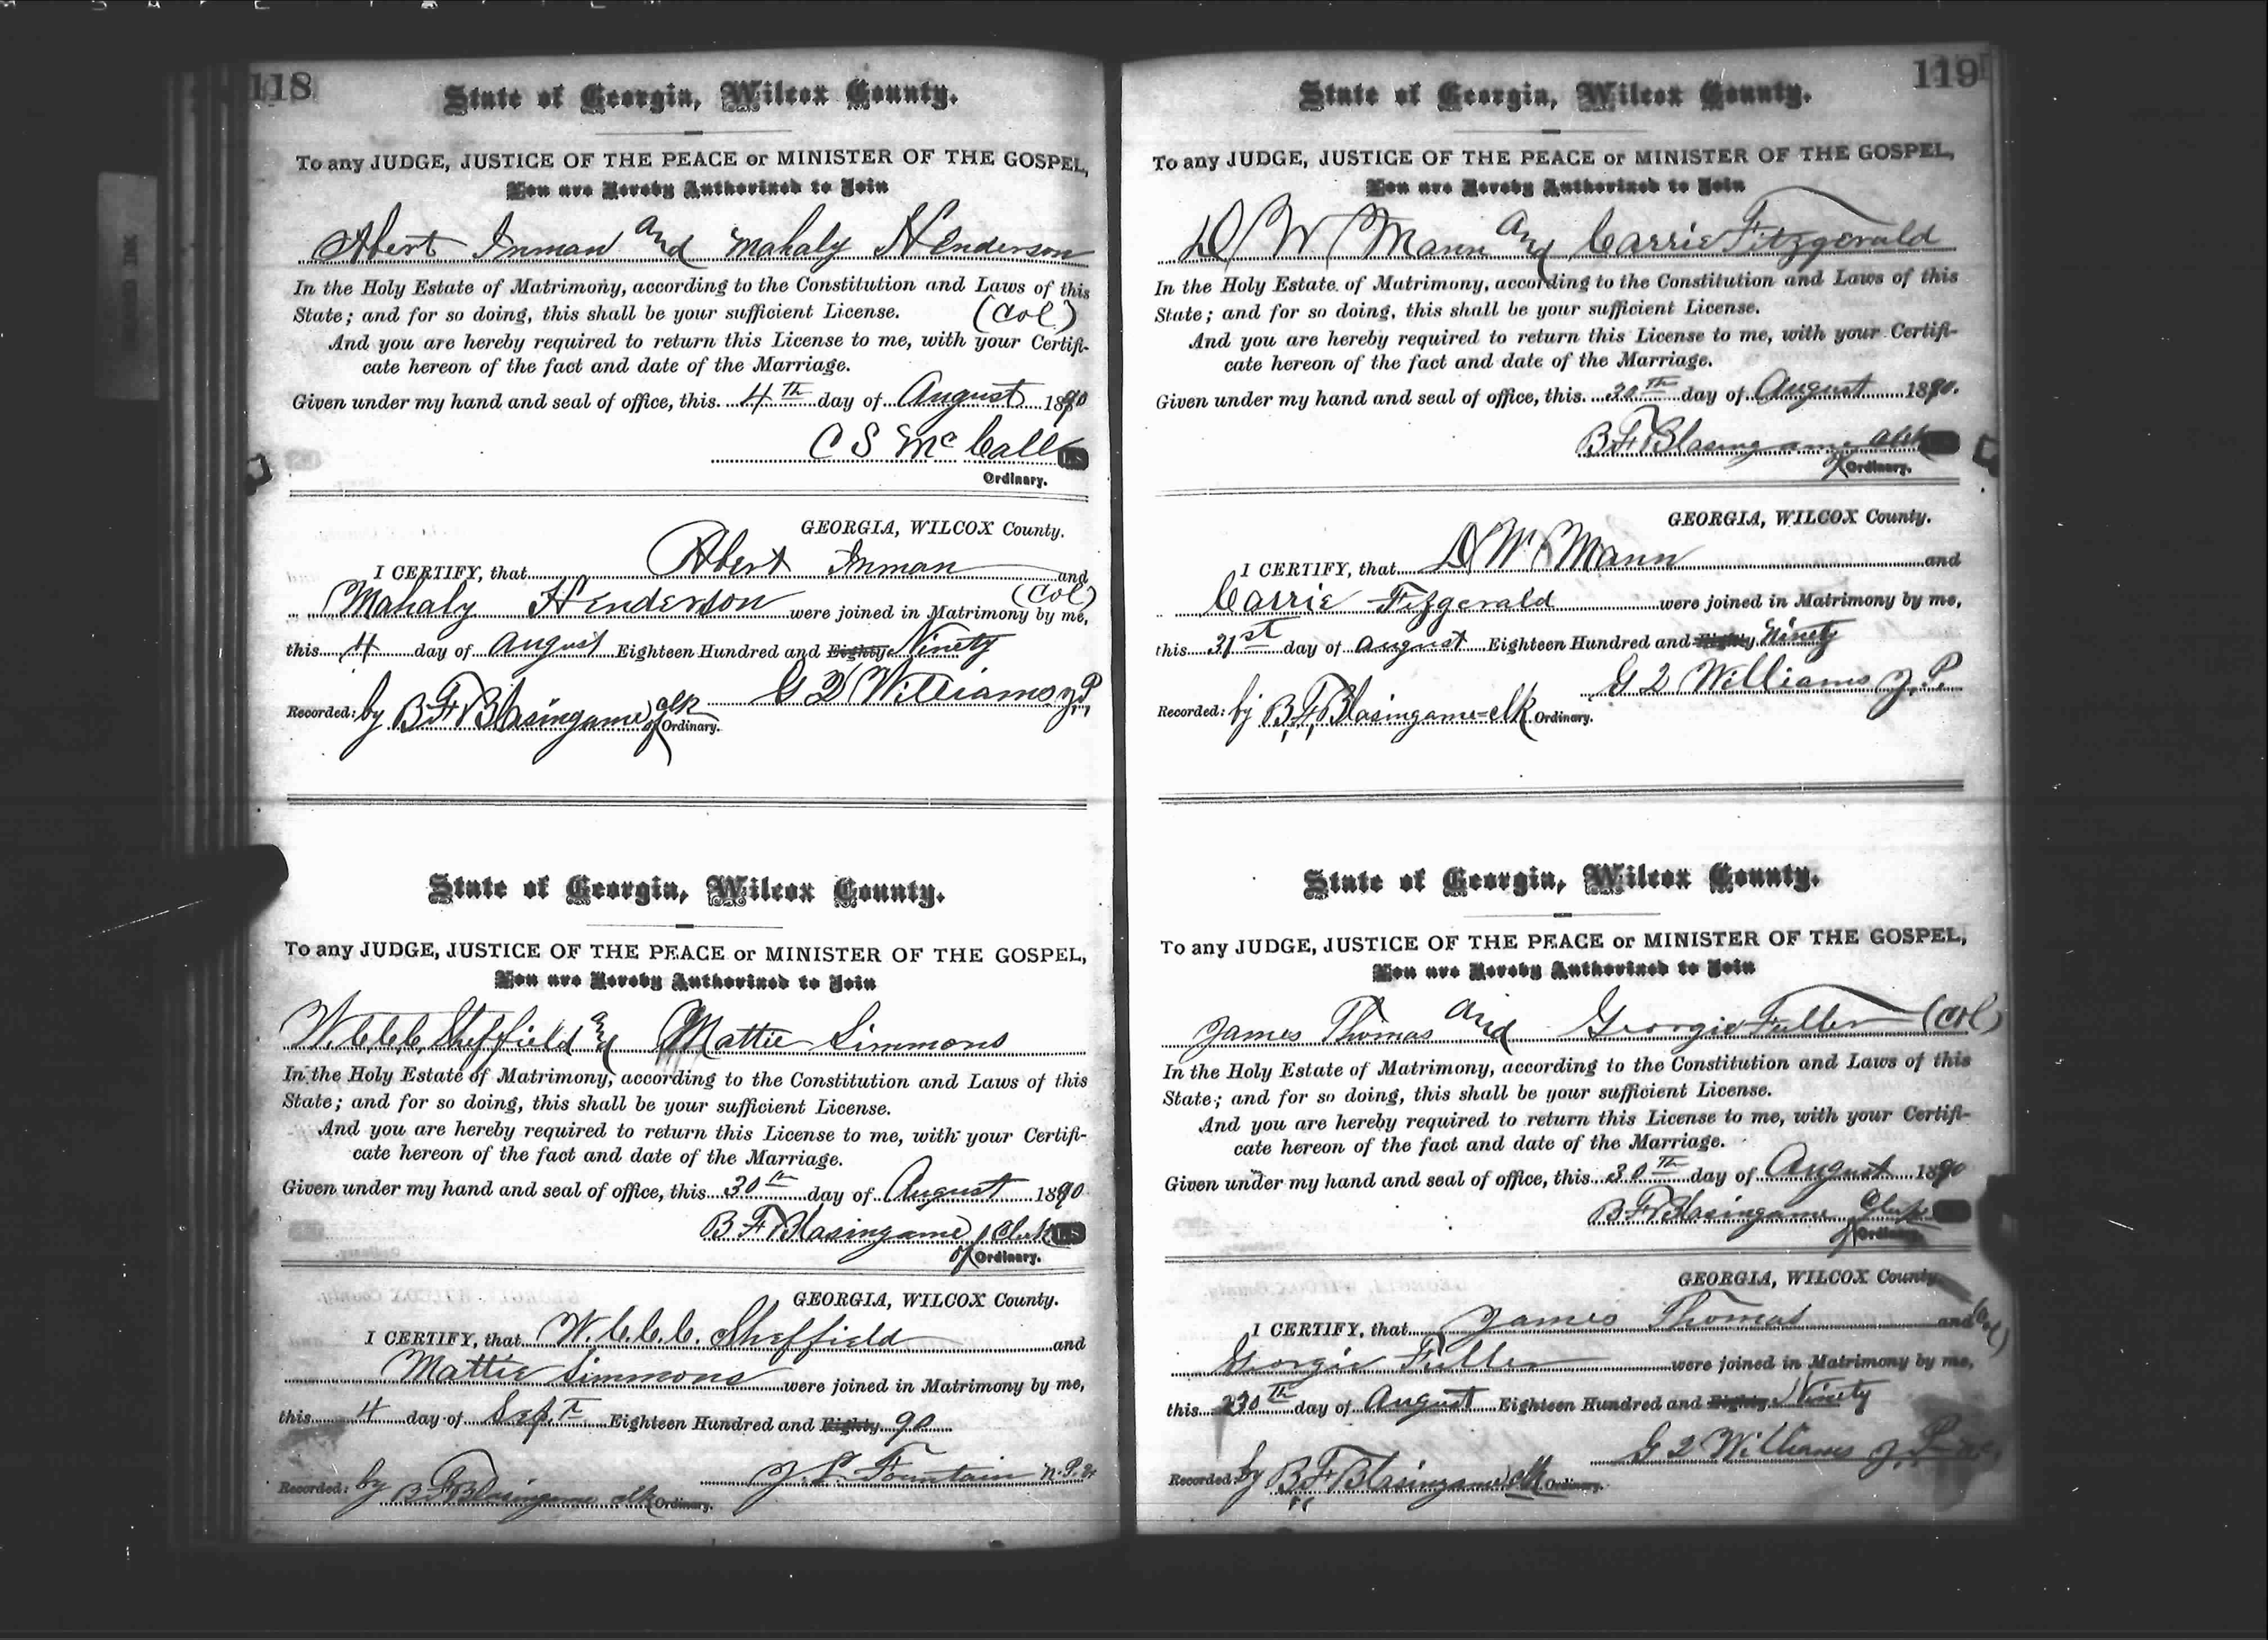 118
State of Georgia, Wilcox County.
To any JUDGE, JUSTICE OF THE PEACE or MINISTER OF THE GOSPEL,
You are Hereby Authorized to Join
Abert Inman and Mahaly Henderson
In the Holy Estate of Matrimony, according to the Constitution and Laws of this
State; and for so doing, this shall be your sufficient License. (Col)
And you are hereby required to return this License to me, with your Certifi-
cate hereon of the fact and date of the Marriage.
Given under my hand and seal of office, this 4th day of August 1890
C S McCall LS
Ordinary.
GEORGIA, WILCOX County.
I CERTIFY, that Abert Inman and
Mahaly Henderson (Col) were joined in Matrimony by me,
this 4 day of August Eighteen Hundred and Eighty Ninety
G 2 Williams J.P.
Recorded: by B F Blasingame clk of Ordinary.
State of Georgia, Wilcox County.
To any JUDGE, JUSTICE OF THE PEACE or MINISTER OF THE GOSPEL,
You are Hereby Authorized to Join
W.C.C.C. Sheffield and Mattie Simmons
In the Holy Estate of Matrimony, according to the Constitution and Laws of this
State; and for so doing, this shall be your sufficient License.
And you are hereby required to return this License to me, with your Certifi-
cate hereon of the fact and date of the Marriage.
Given under my hand and seal of office, this 30th day of August 1890
B F Blasingame Clerk LS
of Ordinary.
GEORGIA, WILCOX County.
I CERTIFY, that W.C.C.C. Sheffield and
Mattie Simmons were joined in Matrimony by me,
this 4 day of Sept Eighteen Hundred and Eighty 90
J. L. Fountain N.P.
Recorded: by B F Blasingame clk Ordinary.
119
State of Georgia, Wilcox County.
To any JUDGE, JUSTICE OF THE PEACE or MINISTER OF THE GOSPEL,
You are Hereby Authorized to Join
D W Mann and Carrie Fitzgerald
In the Holy Estate of Matrimony, according to the Constitution and Laws of this
State; and for so doing, this shall be your sufficient License.
And you are hereby required to return this License to me, with your Certifi-
cate hereon of the fact and date of the Marriage.
Given under my hand and seal of office, this 30th day of August 1890.
B F Blasingame clk
of Ordinary.
GEORGIA, WILCOX County.
I CERTIFY, that D W Mann and
Carrie Fitzgerald were joined in Matrimony by me,
this 31st day of August Eighteen Hundred and Eighty Ninety
G 2 Williams J.P.
Recorded: by B.F. Blasingame clk Ordinary.
State of Georgia, Wilcox County.
To any JUDGE, JUSTICE OF THE PEACE or MINISTER OF THE GOSPEL,
You are Hereby Authorized to Join
James Thomas and Georgie Fuller (Col)
In the Holy Estate of Matrimony, according to the Constitution and Laws of this
State; and for so doing, this shall be your sufficient License.
And you are hereby required to return this License to me, with your Certifi-
cate hereon of the fact and date of the Marriage.
Given under my hand and seal of office, this 30th day of August 1890
B F Blasingame Clerk
of Ordinary.
GEORGIA, WILCOX County.
I CERTIFY, that James Thomas and (Col)
Georgie Fuller were joined in Matrimony by me,
this 30th day of August Eighteen Hundred and Eighty Ninety
G 2 Williams J.P.
Recorded: by B F Blasingame clk Ordinary.